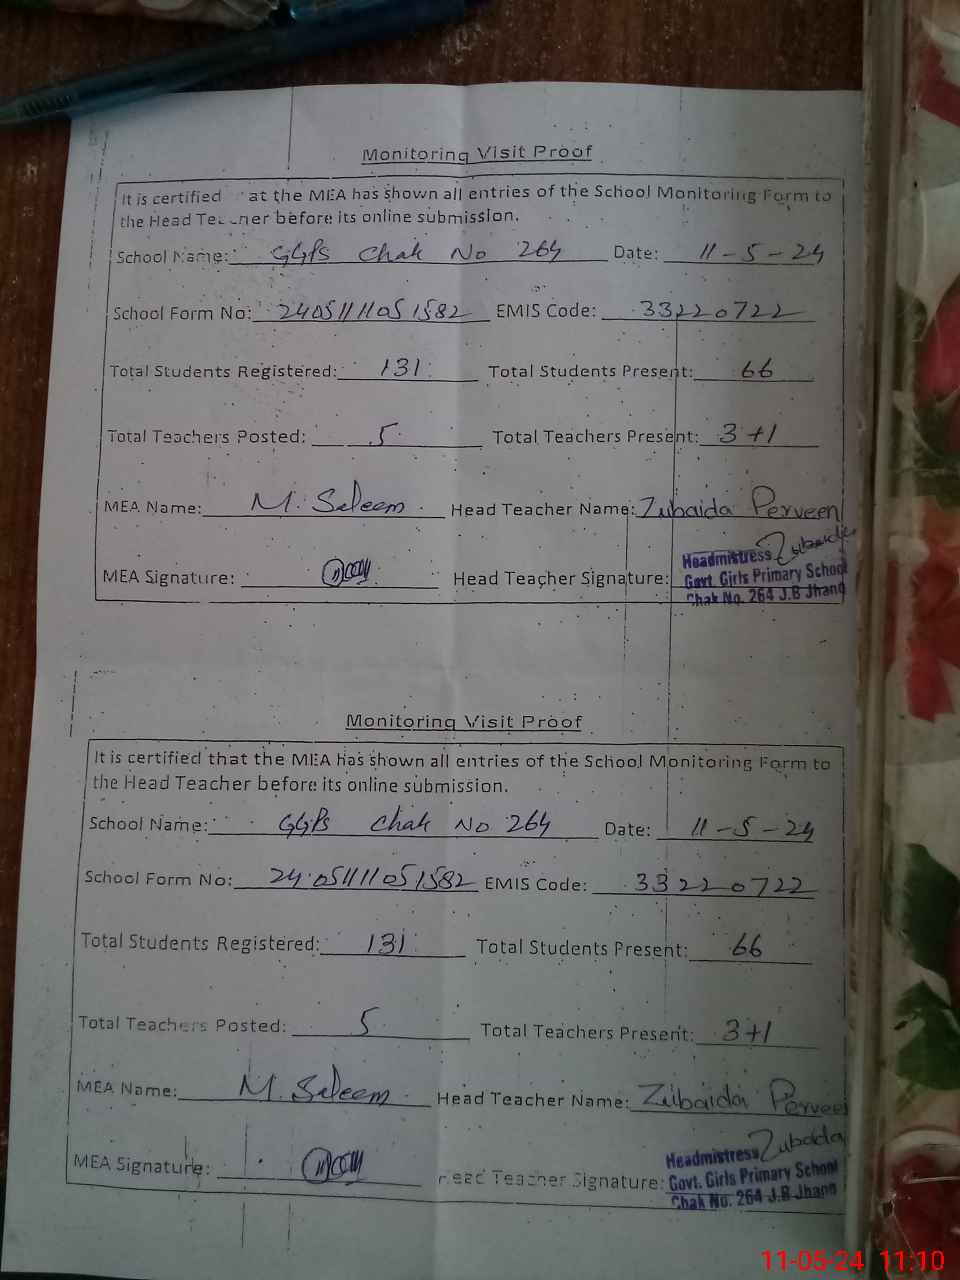 Monitoring Visit Proof
It is certified at the MEA has shown all entries of the School Monitoring Form to
the Head Teacher before its online submission.
School Name: GGPS Chak No 264 Date: 11-5-24
School Form No: 24051111051582 EMIS Code: 33220722
Total Students Registered: 131 Total Students Present: 66
Total Teachers Posted: 5 Total Teachers Present: 3+1
MEA Name: M. Saleem Head Teacher Name: Zubaida Perveen
MEA Signature: Head Teacher Signature: Zubaida
Headmistress
Govt. Girls Primary School
Chak No. 264 J.B Jhang
Monitoring Visit Proof
It is certified that the MEA has shown all entries of the School Monitoring Form to
the Head Teacher before its online submission.
School Name: GGPS Chak No 264 Date: 11-5-24
School Form No: 24051111051582 EMIS Code: 33220722
Total Students Registered: 131 Total Students Present: 66
Total Teachers Posted: 5 Total Teachers Present: 3+1
MEA Name: M. Saleem Head Teacher Name: Zubaida Perveen
MEA Signature: Head Teacher Signature: Zubaida
Headmistress
Govt. Girls Primary School
Chak No. 264 J.B Jhang
11-05-24 11:10